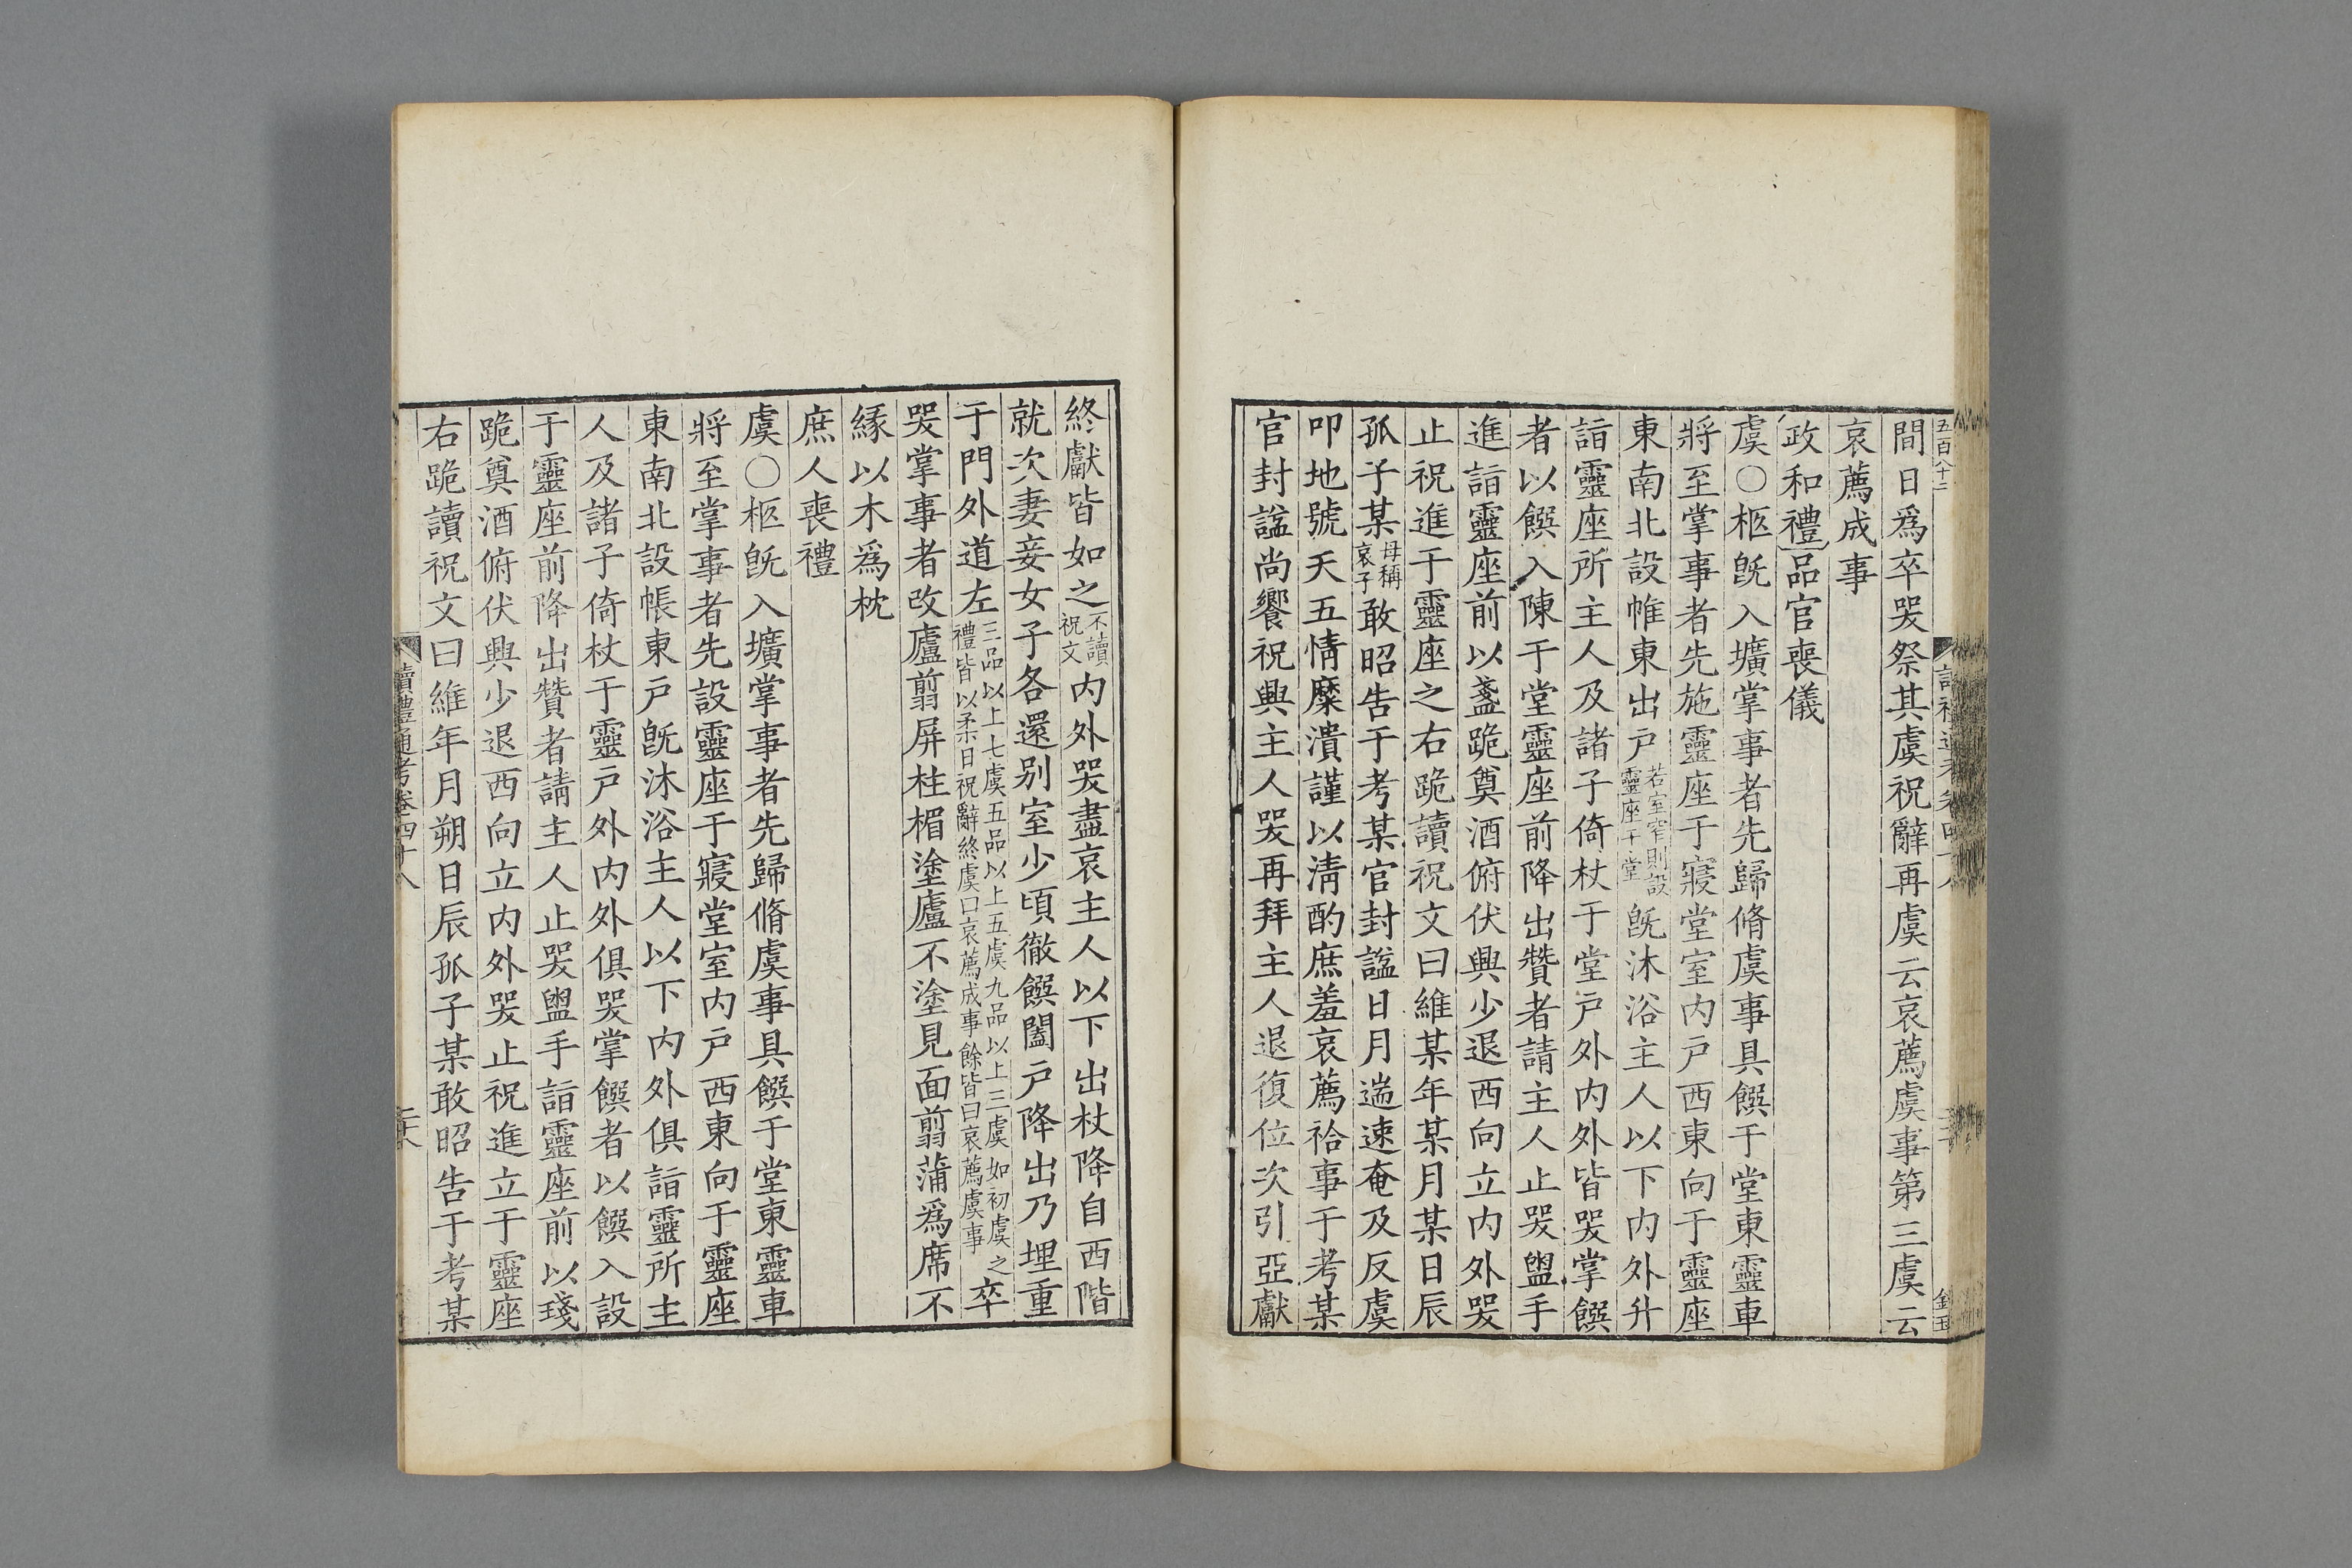 五百八十二
間日爲卒哭祭其虞祝辭再虞云哀薦虞事第三虞云
哀薦成事
政和禮品官喪儀
虞○柩旣入壙掌事者先歸脩虞事具饌于堂東靈車
將至掌事者先施靈座于寢堂室内戶西東向于靈座
東南北設帷東出戶若室窄則設靈座于堂旣沐浴主人以下内外升
詣靈座所主人及諸子倚杖于堂戶外内外皆哭掌饌
者以饌入陳于堂靈座前降出贊者請主人止哭盥手
進詣靈座前以盞跪奠酒俯伏興少退西向立内外哭
止祝進于靈座之右跪讀祝文曰維某年某月某日辰
孤子某母稱哀子敢昭告于考某官封諡日月遄速奄及反虞
叩地號天五情糜潰謹以淸酌庶羞哀薦祫事于考某
官封諡尚饗祝興主人哭再拜主人退復位次引亞獻
終獻皆如之不讀祝文内外哭盡哀主人以下出杖降自西階
就次妻妾女子各還别室少頃徹饌闔戶降出乃埋重
于門外道左三品以上七虞五品以上五虞九品以上三虞如初虞之禮皆以柔日祝辭終虞曰哀薦成事餘皆曰哀薦虞事卒
哭掌事者改廬翦屏柱楣塗廬不塗見面翦蒲爲席不
緣以木爲枕
庶人喪禮
虞○柩旣入壙掌事者先歸脩虞事具饌于堂東靈車
將至掌事者先設靈座于寢堂室内戶西東向于靈座
東南北設帳東戶旣沐浴主人以下内外俱詣靈所主
人及諸子倚杖于靈戶外内外俱哭掌饌者以饌入設
于靈座前降出贊者請主人止哭盥手詣靈座前以琖
跪奠酒俯伏興少退西向立内外哭止祝進立于靈座
右跪讀祝文曰維年月朔日辰孤子某敢昭告于考某
讀禮通考卷四十八